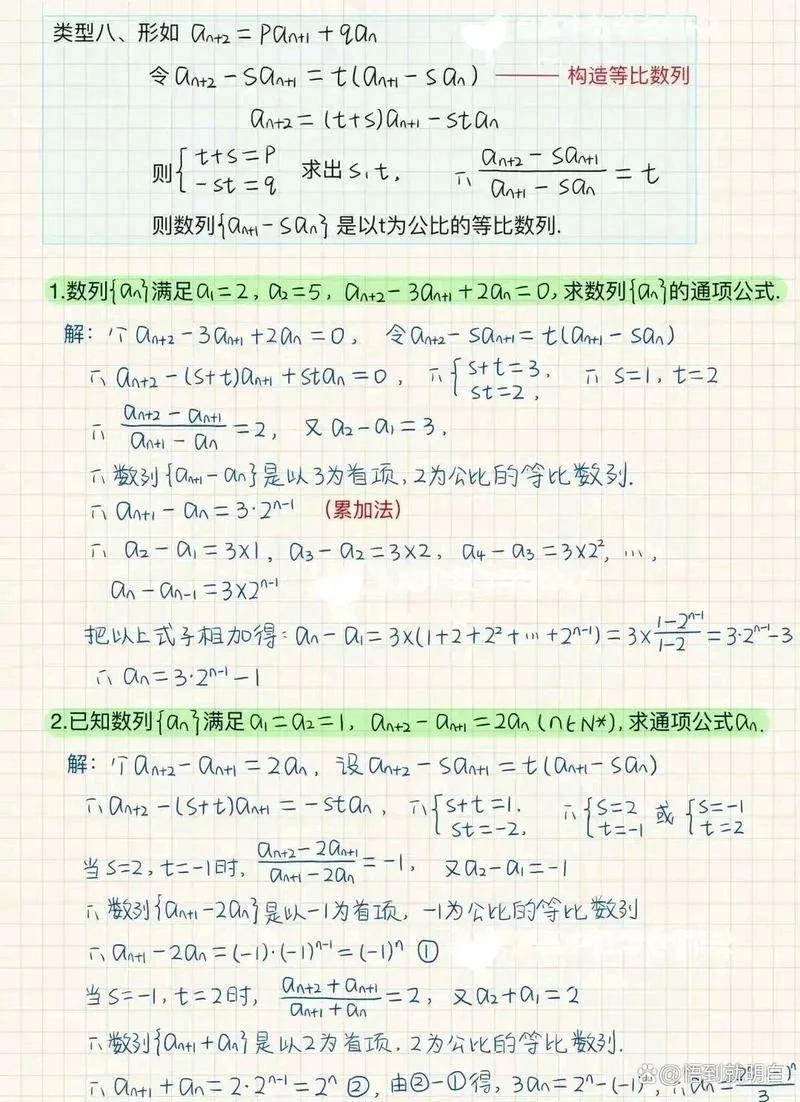 类型八、形如 aₙ₊₂ = paₙ₊₁ + qaₙ
令 aₙ₊₂ - saₙ₊₁ = t(aₙ₊₁ - saₙ) —— 构造等比数列
aₙ₊₂ = (t+s)aₙ₊₁ - staₙ
则 { t+s = p, -st = q 求出 s, t, ∴ (aₙ₊₂ - saₙ₊₁)/(aₙ₊₁ - saₙ) = t
则数列{aₙ₊₁ - saₙ}是以t为公比的等比数列.
1.数列{aₙ}满足a₁=2, a₂=5, aₙ₊₂-3aₙ₊₁+2aₙ=0,求数列{aₙ}的通项公式.
解: ∵ aₙ₊₂-3aₙ₊₁+2aₙ=0, 令aₙ₊₂-saₙ₊₁=t(aₙ₊₁-saₙ)
∴ aₙ₊₂-(s+t)aₙ₊₁+staₙ=0, ∴ { s+t=3, st=2, ∴ s=1, t=2
∴ (aₙ₊₂-aₙ₊₁)/(aₙ₊₁-aₙ)=2, 又a₂-a₁=3,
∴ 数列{aₙ₊₁-aₙ}是以3为首项,2为公比的等比数列.
∴ aₙ₊₁-aₙ=3·2ⁿ⁻¹ (累加法)
∴ a₂-a₁=3×1, a₃-a₂=3×2, a₄-a₃=3×2², …,
aₙ-aₙ₋₁=3×2ⁿ⁻¹
把以上式子相加得: aₙ-a₁=3×(1+2+2²+…+2ⁿ⁻¹)=3×(1-2ⁿ⁻¹)/(1-2)=3·2ⁿ⁻¹-3
∴ aₙ=3·2ⁿ⁻¹-1
2.已知数列{aₙ}满足a₁=a₂=1, aₙ₊₂-aₙ₊₁=2aₙ(n∈N*),求通项公式aₙ.
解: ∵aₙ₊₂-aₙ₊₁=2aₙ, 设aₙ₊₂-saₙ₊₁=t(aₙ₊₁-saₙ)
∴aₙ₊₂-(s+t)aₙ₊₁=-staₙ, ∴{ s+t=1, st=-2, ∴{ s=2 t=-1 或 { s=-1 t=2
当s=2, t=-1时, (aₙ₊₂-2aₙ₊₁)/(aₙ₊₁-2aₙ)=-1, 又a₂-a₁=-1
∴数列{aₙ₊₁-2aₙ}是以-1为首项, -1为公比的等比数列
∴ aₙ₊₁-2aₙ=(-1)·(-1)ⁿ⁻¹=(-1)ⁿ ①
当s=-1, t=2时, (aₙ₊₂+aₙ₊₁)/(aₙ₊₁+aₙ)=2, 又a₂+a₁=2
∴数列{aₙ₊₁+aₙ}是以2为首项, 2为公比的等比数列.
∴ aₙ₊₁+aₙ=2·2ⁿ⁻¹=2ⁿ ②, 由②-①得, 3aₙ=2ⁿ-(-1)
@悟到就明白